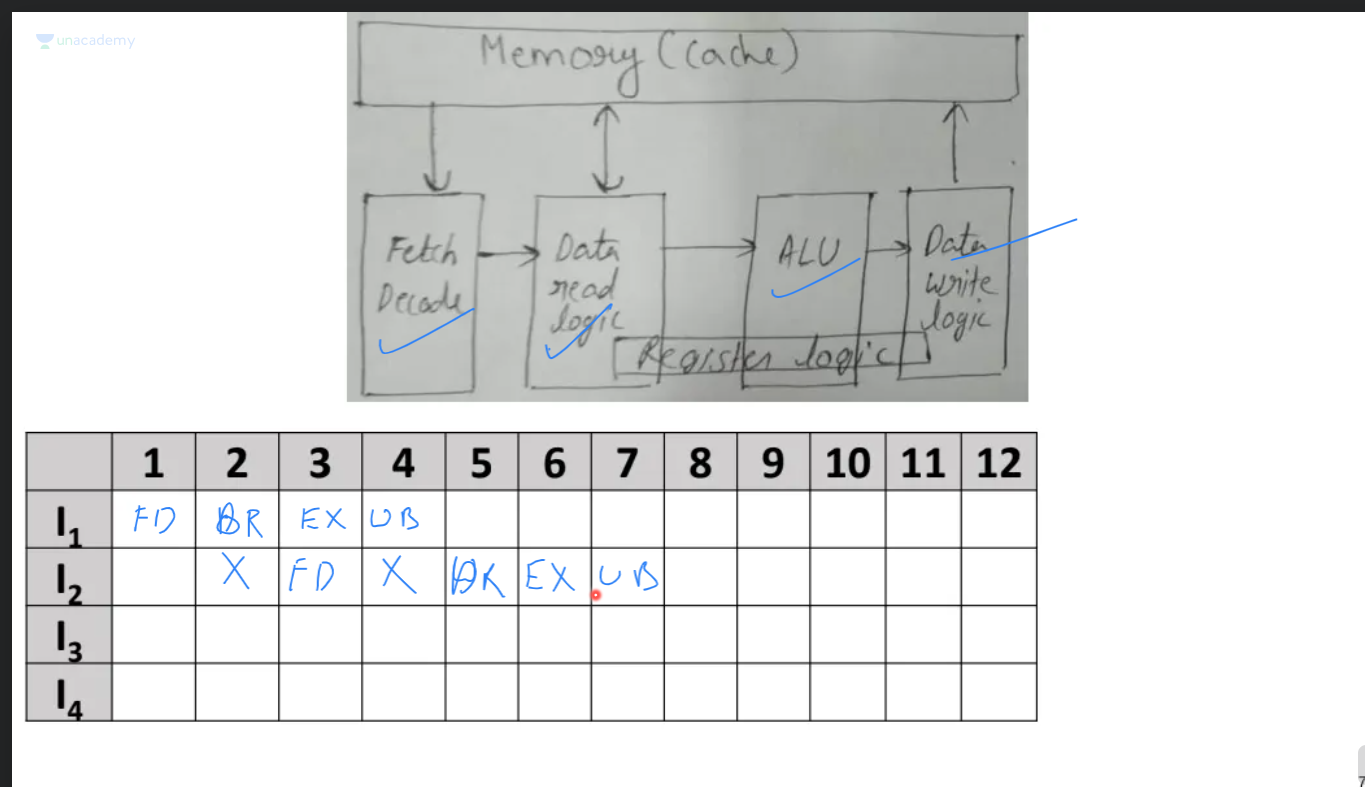 unacademy
Memory (Cache)
Fetch
Decode
Data
read
logic
ALU
Data
write
logic
Register logic
1 2 3 4 5 6 7 8 9 10 11 12
I1 FD DR EX WB
I2 X FD X DR EX WB
I3
I4
7